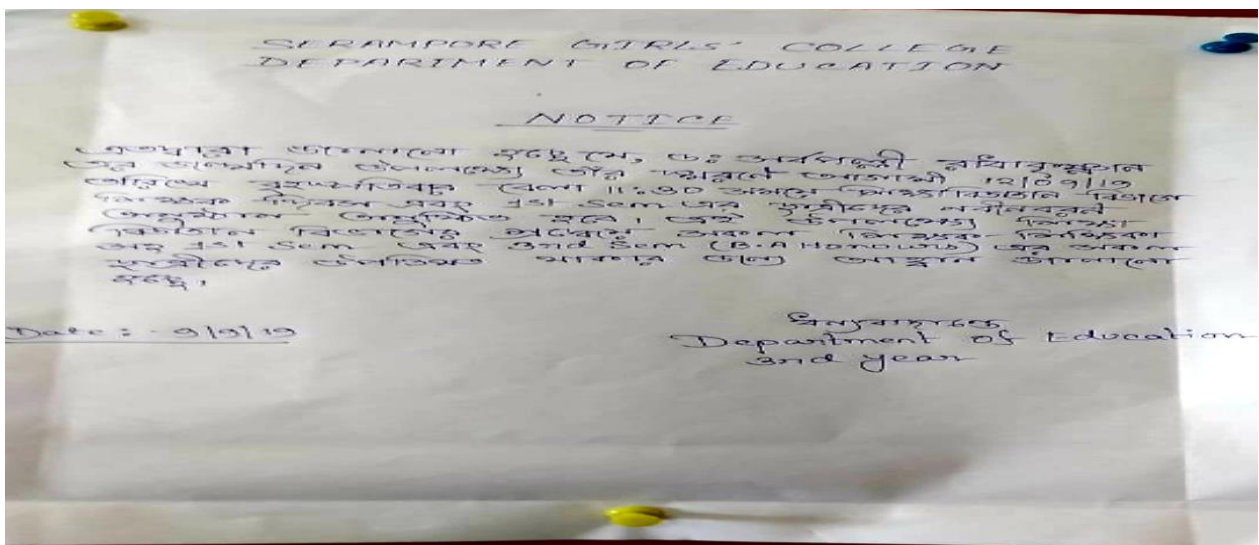 SERAMPORE GIRLS' COLLEGE
DEPARTMENT OF EDUCATION
NOTICE
এতদ্বারা জানানো হচ্ছে যে, ডঃ সর্বপল্লী রাধাকৃষ্ণান
এর জন্মদিন উপলক্ষ্যে তাঁর স্মরণে আগামী 12/09/19
তারিখে বৃহস্পতিবার বেলা 11:30 সময়ে শিক্ষাবিজ্ঞান বিভাগে
শিক্ষক দিবস এবং 1st Sem এর ছাত্রীদের নবীনবরণ
অনুষ্ঠান অনুষ্ঠিত হবে। এই উপলক্ষ্যে শিক্ষা
বিজ্ঞান বিভাগের সকল শিক্ষক শিক্ষিকা
সহ 1st Sem এবং 3rd Sem (B.A Honours) এর সকল
ছাত্রীদের উপস্থিত থাকার জন্য আহ্বান জানানো
হচ্ছে।
Date: - 9/9/19
ধন্যবাদান্তে
Department of Education
3rd year